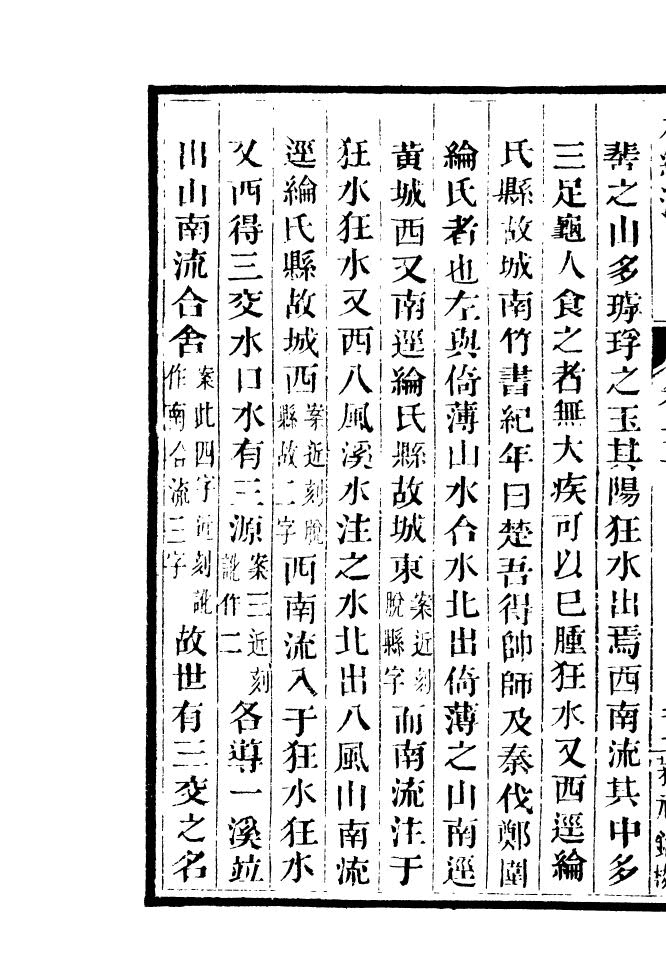 琴之山多㻬琈之玉其陽狂水出焉西南流其中多
三足龜人食之者無大疾可以已腫狂水又西逕綸
氏縣故城南竹書紀年曰楚吾得帥師及秦伐鄭圍
綸氏者也左與倚薄山水合水北出倚薄之山南逕
黃城西又南逕綸氏縣故城東案近刻脫縣字而南流注于
狂水狂水又西八風溪水注之水北出八風山南流
逕綸氏縣故城西案近刻脫縣故二字西南流入于狂水狂水
又西得三交水口水有三源案三近刻訛作二各導一溪竝
出山南流合舍案此四字近刻訛作南合流三字故世有三交之名